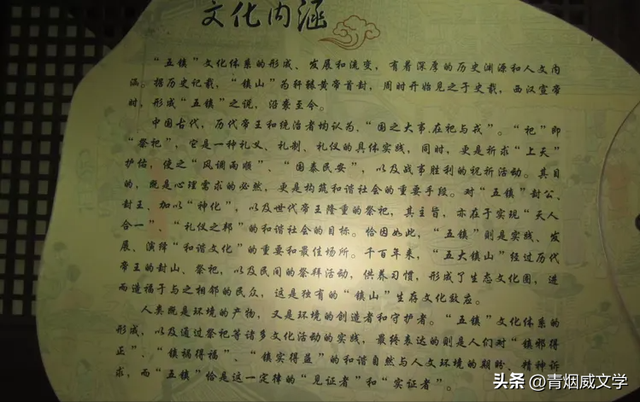 文化内涵
“五镇”文化体系的形成、发展和流变，有着深厚的历史渊源和人文内
涵。据历史记载，“镇山”为轩辕黄帝首封，周时开始见之于史载，西汉宣帝
时，形成“五镇”之说，沿袭至今。
中国古代，历代帝王和统治者均认为，“国之大事，在祀与戎”。“祀”即
“祭祀”，它是一种礼义、礼制、礼仪的具体实践，同时，更是祈求“上天”
护佑，使之“风调雨顺”、“国泰民安”，以及战事胜利的祝祈活动。其目
的，既是心理需求的必然，更是构筑和谐社会的重要手段。对“五镇”封公、
封王、加以“神化”，以及世代帝王隆重的祭祀，其主旨，亦在于实现“天人
合一”、“礼仪之邦”的和谐社会的目标。恰因如此，“五镇”则是实践、发
展、演绎“和谐文化”的重要和最佳场所。千百年来，“五大镇山”经过历代
帝王的封山、祭祀，以及民间的祭拜活动，供养习惯，形成了生态文化圈，进
而造福于与之相邻的民众，这是独有的“镇山”生存文化效应。
人类既是环境的产物，又是环境的创造者和守护者。“五镇”文化体系的
形成，以及通过祭祀等诸多文化活动的实践，最终表达的则是人们对“镇邪得
正”、“镇祸得福”、“镇实得益”的和谐自然与人文环境的期盼、精神诉
求，而“五镇”恰是这一定律的“见证者”和“实证者”。
头条 @青烟威文学